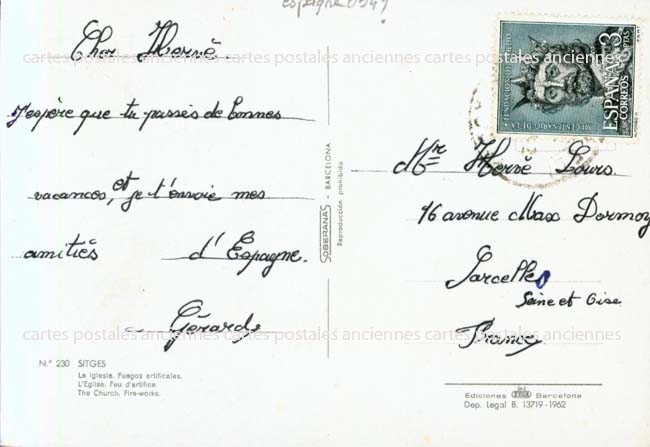 espagne 0549
Cher Hervé
J'espère que tu passes de bonnes
vacances, et je t'envoie mes
amitiés d'Espagne.
Gérard
N.° 230 SITGES
La Iglesia. Fuegos artificiales.
L'Eglise. Feu d'artifice.
The Church. Fire-works.
SOBERANAS - BARCELONA
Reproducción prohibida
ESPAÑA 3
PTAS
CORREOS
Mr Hervé Lours
16 avenue Max Dormoy
Sarcelles
Seine et Oise
France
Ediciones Barcelona
Dep. Legal B. 13719-1962
cartes postales anciennes cartes postales anciennes cartes postales anciennes
cartes postales anciennes cartes postales anciennes cartes postales anciennes
cartes postales anciennes cartes postales anciennes cartes postales anciennes